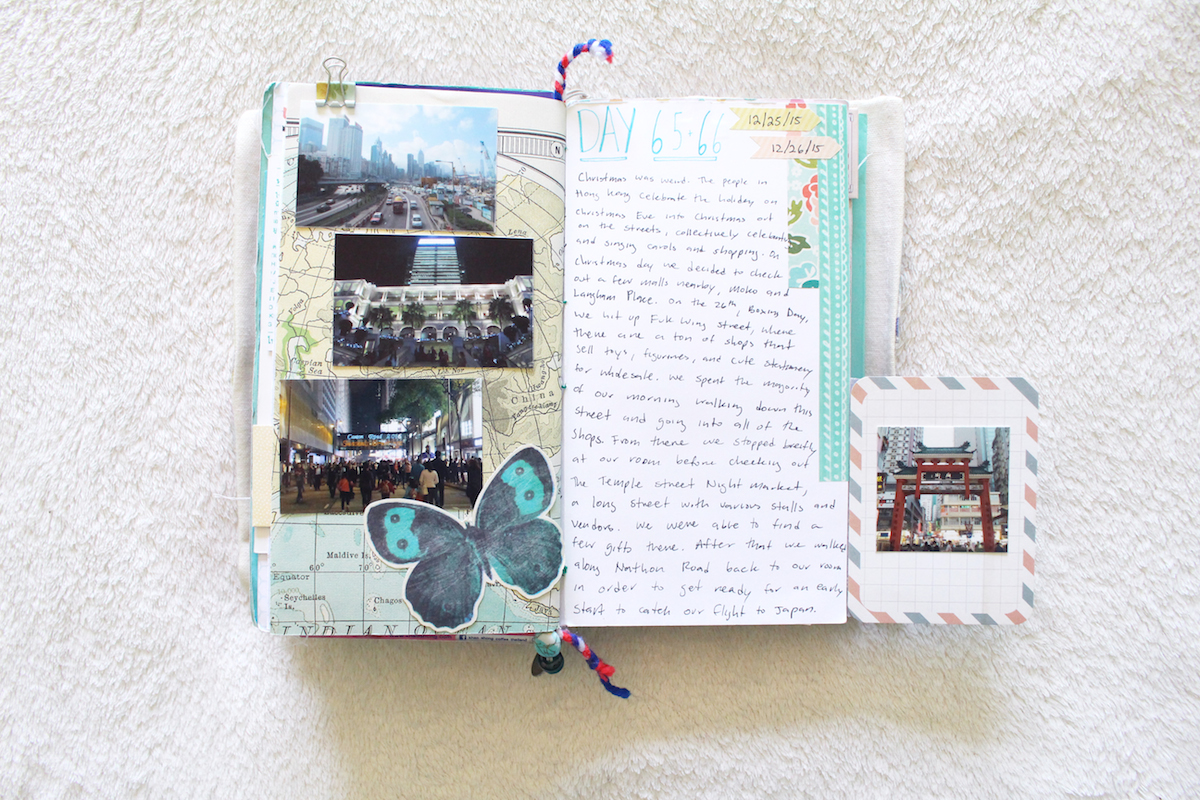 N
70
Lena
Volga
Caspian
Sea
China
Maldive Is.
60°
70°
Equator
Seychelles
Is.
Chagos
Is.
INDIAN OCEAN
DAY 65+66
12/25/15
12/26/15
Christmas was weird. The people in
Hong Kong celebrate the holiday on
Christmas Eve into Christmas out
on the streets, collectively celebrating
and singing carols and shopping. On
Christmas day we decided to check
out a few malls nearby, Moko and
Langham Place. On the 26th, Boxing Day,
we hit up Fuk Wing Street, where
there are a ton of shops that
sell toys, figurines, and cute stationery
for wholesale. We spent the majority
of our morning walking down this
street and going into all of the
shops. From there we stopped briefly
at our room before checking out
the Temple Street Night Market,
a long street with various stalls and
vendors. We were able to find a
few gifts there. After that we walked
along Nathan Road back to our room
in order to get ready for an early
start to catch our flight to Japan.